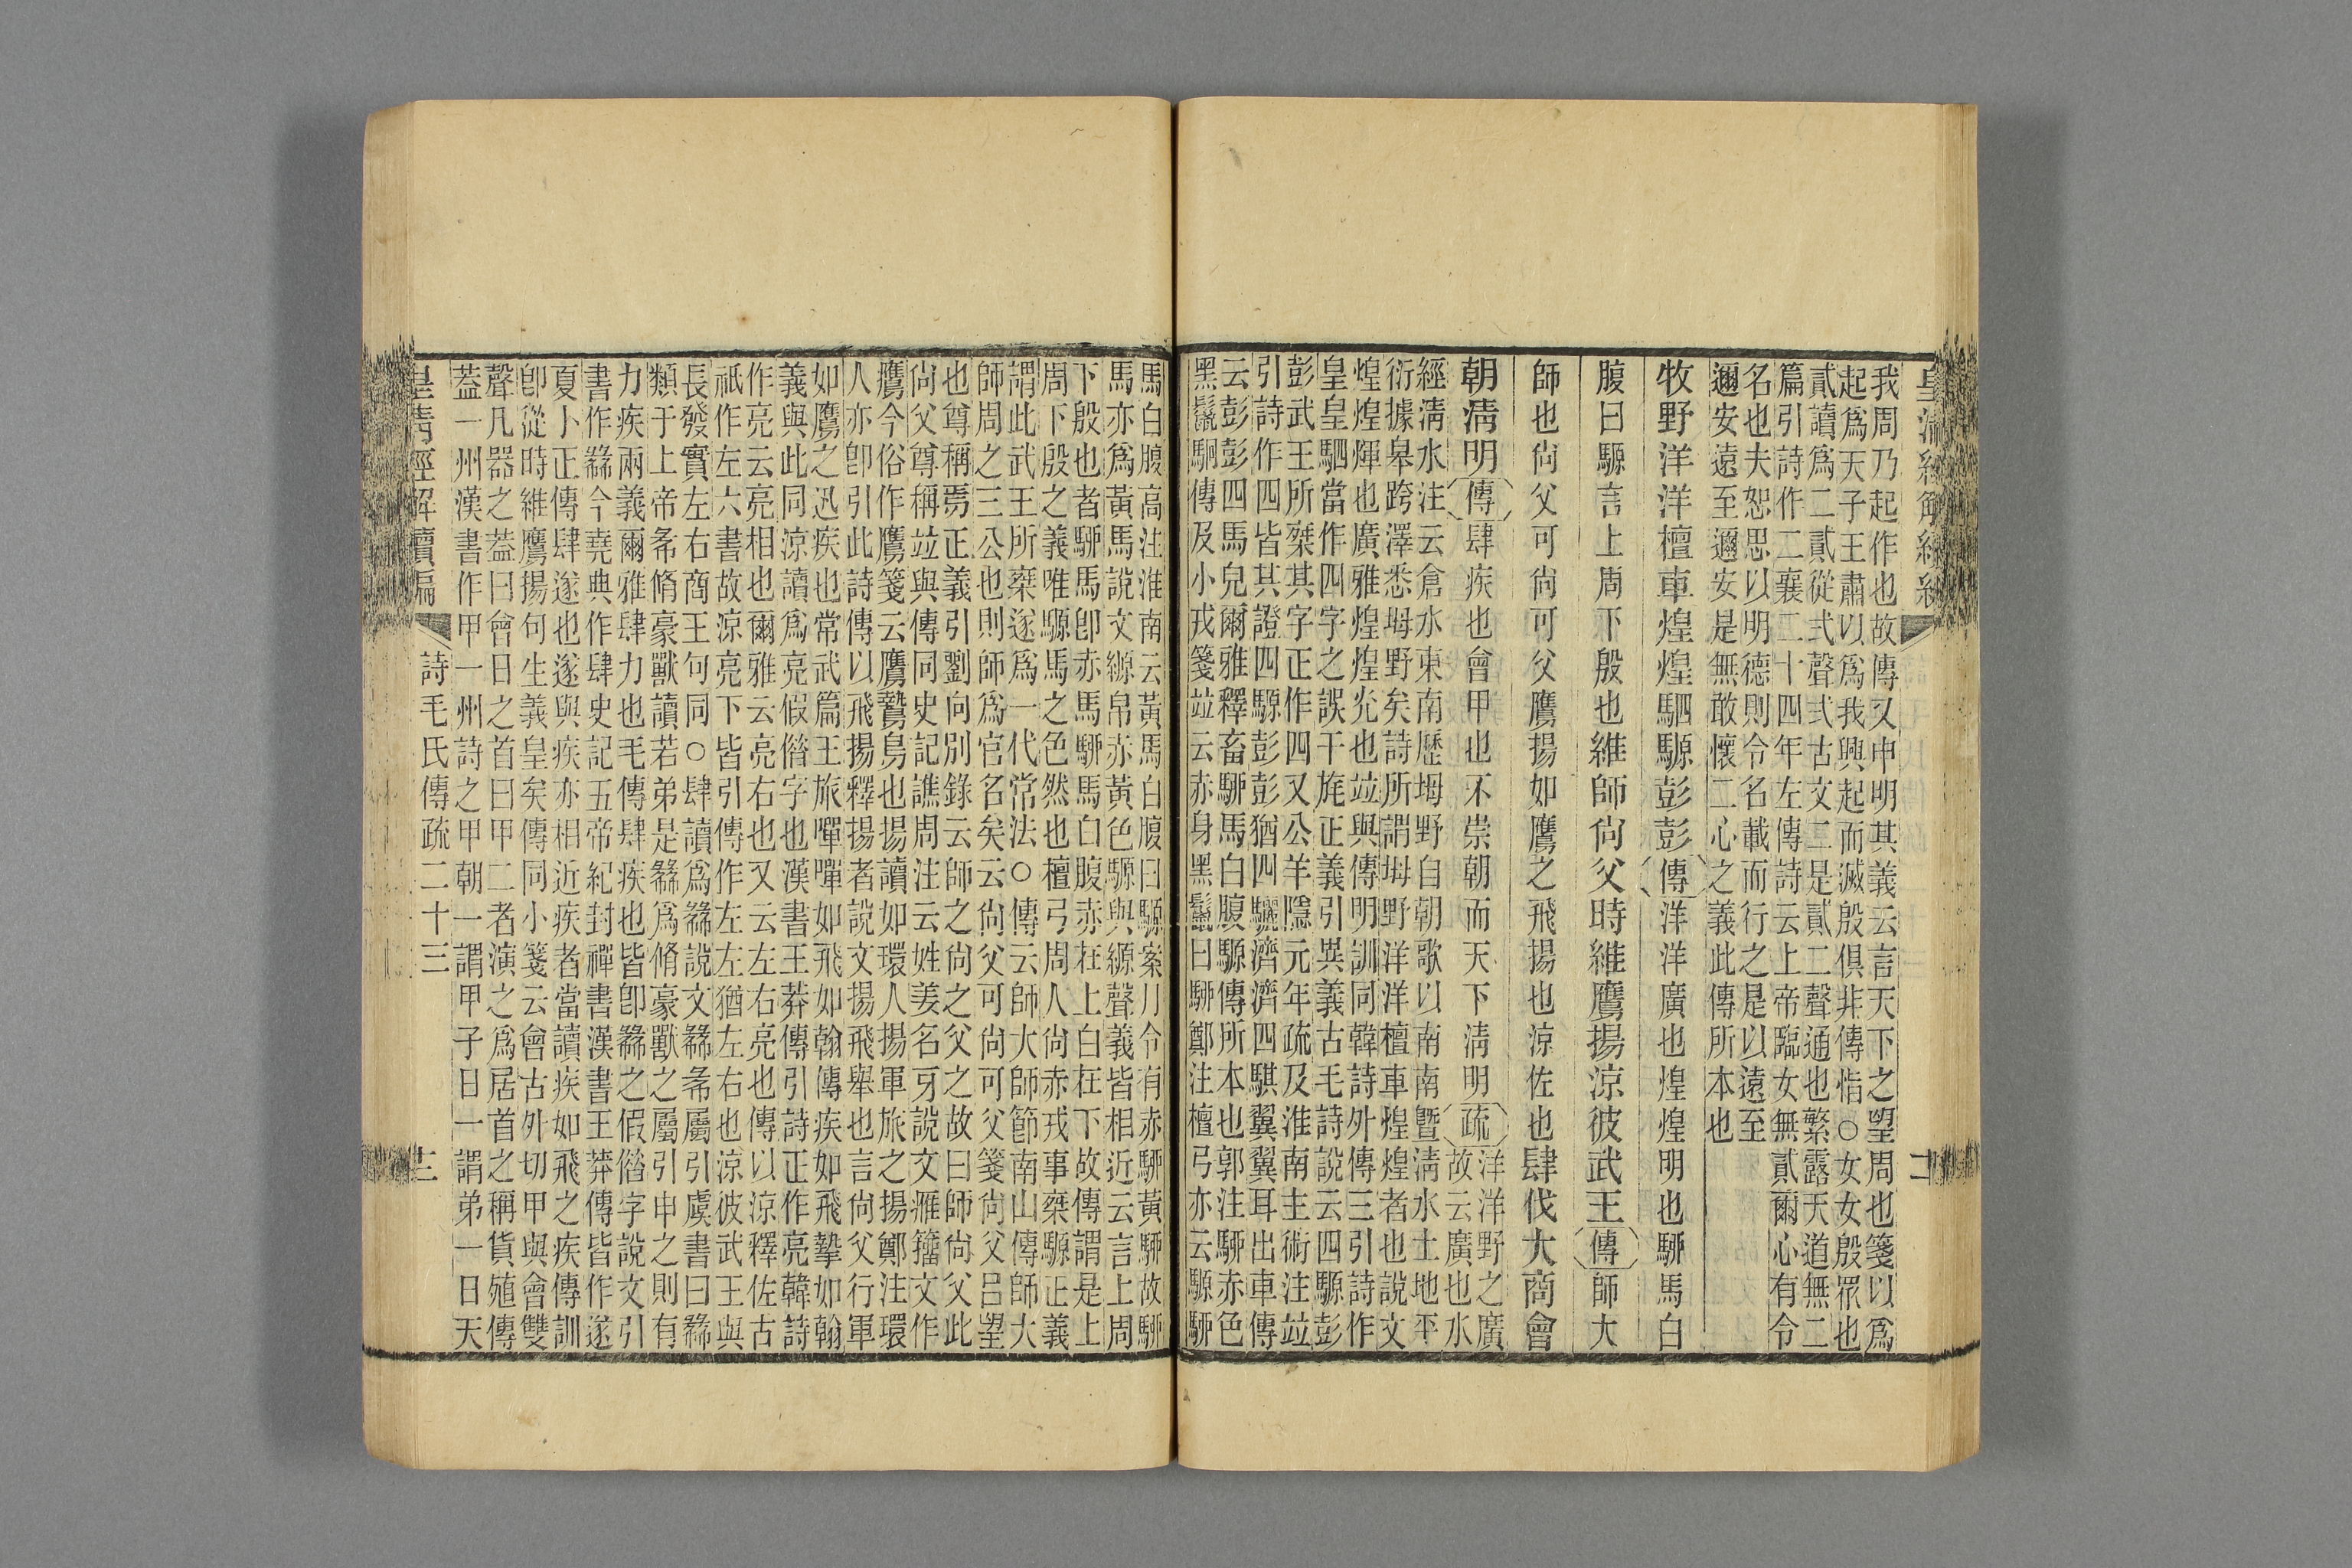 我周乃起作也故傳又申明其義云言天下之望周也箋以爲
起爲天子王肅以爲我興起而滅殷俱非傳恉○女女殷眾也
貳讀爲二貳從弍聲弍古文二是貳二聲通也繁露天道無二
篇引詩作二襄二十四年左傳詩云上帝臨女無貳爾心有令
名也夫恕思以明德則令名載而行之是以遠至
邇安遠至邇安是無敢懷二心之義此傳所本也
牧野洋洋檀車煌煌駟騵彭彭傳洋洋廣也煌煌明也騵馬白
腹曰騵言上周下殷也維師尙父時維鷹揚涼彼武王傳師大
師也尙父可尙可父鷹揚如鷹之飛揚也涼佐也肆伐大商會
朝淸明傳肆疾也會甲也不崇朝而天下淸明疏洋洋野之廣
故云廣也水
經淸水注云倉水東南歷坶野自朝歌以南南曁淸水土地平
衍據皋跨澤悉坶野矣詩所謂坶野洋洋檀車煌煌者也說文
煌煌煇也廣雅煌煌光也竝與傳明訓同韓詩外傳三引詩作
皇皇駟當作四字之誤干旄正義引異義古毛詩說云四騵彭
彭武王所椉其字正作四又公羊隱元年疏及淮南主術注竝
引詩作四皆其證四騵彭彭猶四驪濟濟四騏翼翼耳出車傳
云彭彭四馬皃爾雅釋畜駵馬白腹騵傳所本也郭注駵赤色
黑鬣駉傳及小戎箋竝云赤身黑鬣曰駵鄭注檀弓亦云騵駵
馬白腹高注淮南云黃馬白腹曰騵案月令有赤駵黃駵故駵
馬亦爲黃馬說文縓帛赤黃色騵與縓聲義皆相近云言上周
下殷也者駵馬卽赤馬駵馬白腹赤在上白在下故傳謂是上
周下殷之義唯騵馬之色然也檀弓周人尙赤戎事椉騵正義
謂此武王所椉遂爲一代常法○傳云師大師節南山傳師大
師周之三公也則師爲官名矣云尙父可尙可父箋尙父呂望
也尊稱焉正義引劉向別錄云師之尙之父之故曰師尙父此
尙父尊稱竝與傳同史記譙周注云姓姜名牙說文雁籒文作
鷹今俗作鷹箋云鷹鷙鳥也揚讀如環人揚軍旅之揚鄭注環
人亦卽引此詩傳以飛揚釋揚者說文揚飛舉也言尙父行軍
如鷹之迅疾也常武篇王旅嘽嘽如飛如翰傳疾如飛摯如翰
義與此同涼讀爲亮假偺字也漢書王莽傳引詩正作亮韓詩
作亮云亮相也爾雅云亮右也又云左右亮也傳以涼釋佐古
祇作左六書故涼亮下皆引傳作左左猶左右也涼彼武王與
長發實左右商王句同○肆讀爲䋣說文䋣㣇屬引虞書曰䋣
類于上帝㣇脩豪獸讀若弟是䋣爲脩豪獸之屬引申之則有
力疾兩義爾雅肆力也毛傳肆疾也皆卽䋣之假偺字說文引
書作䋣今堯典作肆史記五帝紀封禪書漢書王莽傳皆作遂
夏小正傳肆遂也遂與疾亦相近疾者當讀疾如飛之疾傳訓
卽從時維鷹揚句生義皇矣傳同小箋云會古外切甲與會雙
聲凡器之葢曰會日之首曰甲二者演之爲居首之稱貨殖傳
葢一州漢書作甲一州詩之甲朝一謂甲子日一謂弟一日天
皇淸經解續編
詩毛氏傳疏二十三